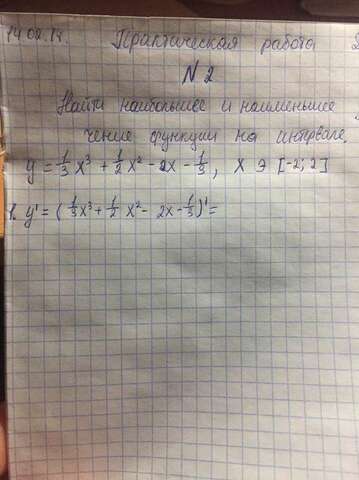 14.02.18. Практическая работа
N 2
Найти наибольшее и наименьшее
чение функции на интервале.
y = 1/3 x³ + 1/2 x² - 2x - 1/3, x э [-2; 2]
1. y' = (1/3 x³ + 1/2 x² - 2x - 1/3)' =